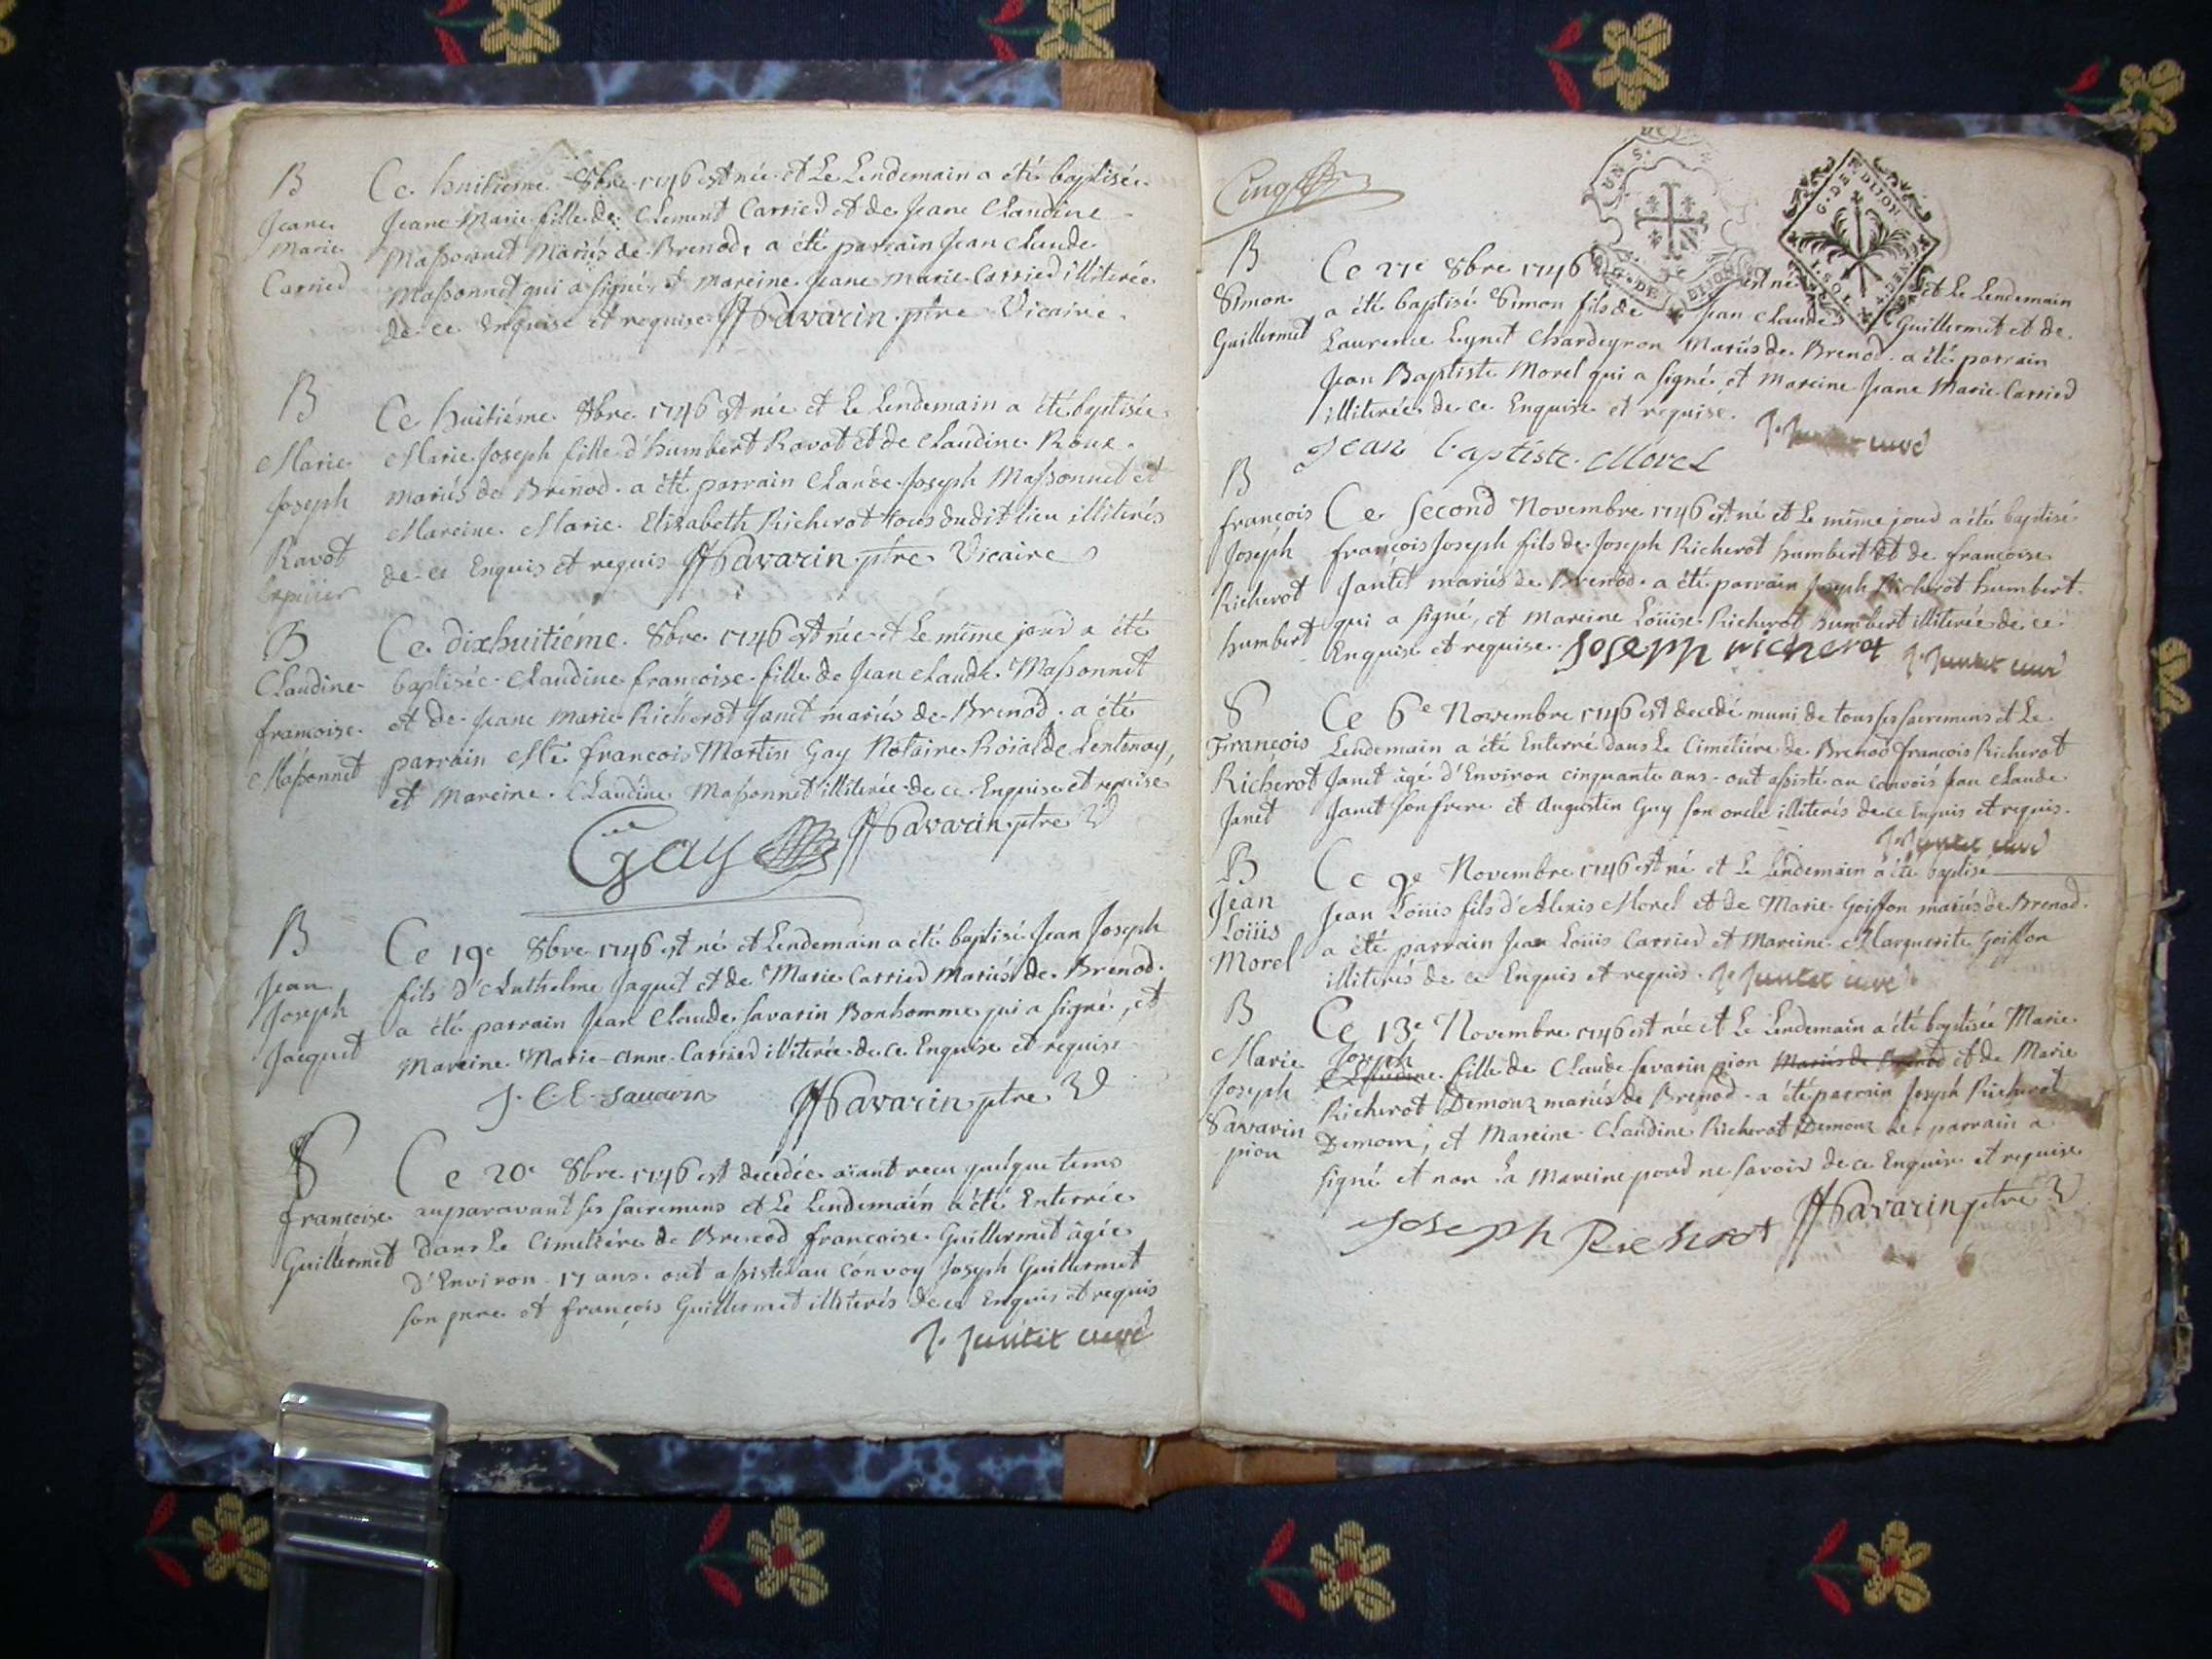 B
Jeane
Marie
Carried
Ce huitieme 8bre 1746 est née et Le Lendemain a été baptisée
Jeane Marie fille de Clement Carried et de Jeane Claudine
Massonnet Mariés de Brenod, a été parrain Jean Claude
Massonnet qui a signé, et Mareine Jeane Marie Carried illiterée
de ce Enquise et requise Savarin ptre Vicaire
B
Marie
Joseph
Ravot
Ce huitiéme 8bre 1746 est née et Le Lendemain a été baptisée
Marie Joseph fille d'humbert Ravot et de Claudine Roux
mariés de Brenod. a été parrain Claude Joseph Massonnet et
Mareine Marie Elizabeth Richerot tous dudit lieu illiterés
de ce Enquis et requis Savarin ptre Vicaire
B
Claudine
francoise
Massonnet
Ce dixhuitiéme 8bre 1746 est née et Le même jour a été
baptisée Claudine francoise fille de Jean Claude Massonnet
et de Jeane Marie Richerot Janet mariés de Brenod. a été
parrain Me francois Martin Gay Notaire Roïal de Lentenay,
et Mareine Claudine Massonnet illiterée de ce Enquise et requise
Gay Savarin ptre V
B
Jean
Joseph
Jacquet
Ce 19e 8bre 1746 est né et Lendemain a été baptisé Jean Joseph
fils d'Anthelme Jaquet et de Marie Carried Mariés de Brenod.
a été parrain Jean Claude Savarin Bonhomme qui a signé, et
Mareine Marie-Anne Carried illiterée de ce Enquise et requise
J. C. Savarin Savarin ptre V
S
francoise
Guillermet
Ce 20e 8bre 1746 est decedée aïant recu quelque tems
auparavant ses sacremens et Le Lendemain a été Enterrée
dans Le Cimetiére de Brenod francoise Guillermet âgée
d'Environ 17 ans. ont assisté au Convoy Joseph Guillermet
son pere et françois Guillermet illiterés de ce Enquis et requis
J. Jantet curé
Cinq
UN S.
G. DE DIJON
G. DE DIJON
SOL
B
Simon
Guillermet
Ce 27e 8bre 1746 est né et Le Lendemain
a été baptisé Simon fils de Jean Claude Guillermet et de
Laurence Leynet Chardeyron Mariés de Brenod. a été parrain
Jean Baptiste Morel qui a signé et Mareine Jeane Marie Carried
illiterée de ce Enquise et requise.
J. Jantet curé
Jean baptiste Morel
B
françois
Joseph
Richerot
humbert
Ce second Novembre 1746 est né et Le même jour a été baptisé
françois Joseph fils de Joseph Richerot humbert et de françoise
Jantet mariés de Brenod. a été parrain Joseph Richerot humbert
qui a signé, et Mareine Loüise Richerot humbert illiterée de ce
Enquise et requise. Joseph richerot J. Jantet curé
S
François
Richerot
Janet
Ce 6e Novembre 1746 est decedé muni de tous ses sacremens et Le
Lendemain a été Enterré dans Le Cimetiére de Brenod françois Richerot
Janet âgé d'Environ cinquante ans. ont assisté au Convois Jean Claude
Janet son frere et Augustin Guy son oncle illiterés de ce Enquis et requis.
J. Jantet curé
B
Jean
Loüis
Morel
Ce 9e Novembre 1746 est né et Le Lendemain a été baptisé
Jean Loüis fils d'Alexis Morel et de Marie Goiffon mariés de Brenod.
a été parrain Jean Loüis Carried et Mareine Marguerite Goiffon
illiterés de ce Enquis et requis. J. Jantet curé
B
Marie
Joseph
Savarin
pion
Ce 13e Novembre 1746 est née et Le Lendemain a été baptisée Marie
Joseph
Claudine fille de Claude Savarin pion Mariés de Brenod et de Marie
Richerot Demoux mariés de Brenod. a été parrain Joseph Richerot
Demoux, et Mareine Claudine Richerot Demoux Le parrain a
signé et non La Mareine pour ne savoir de ce Enquise et requise
Joseph Richerot Savarin ptre V